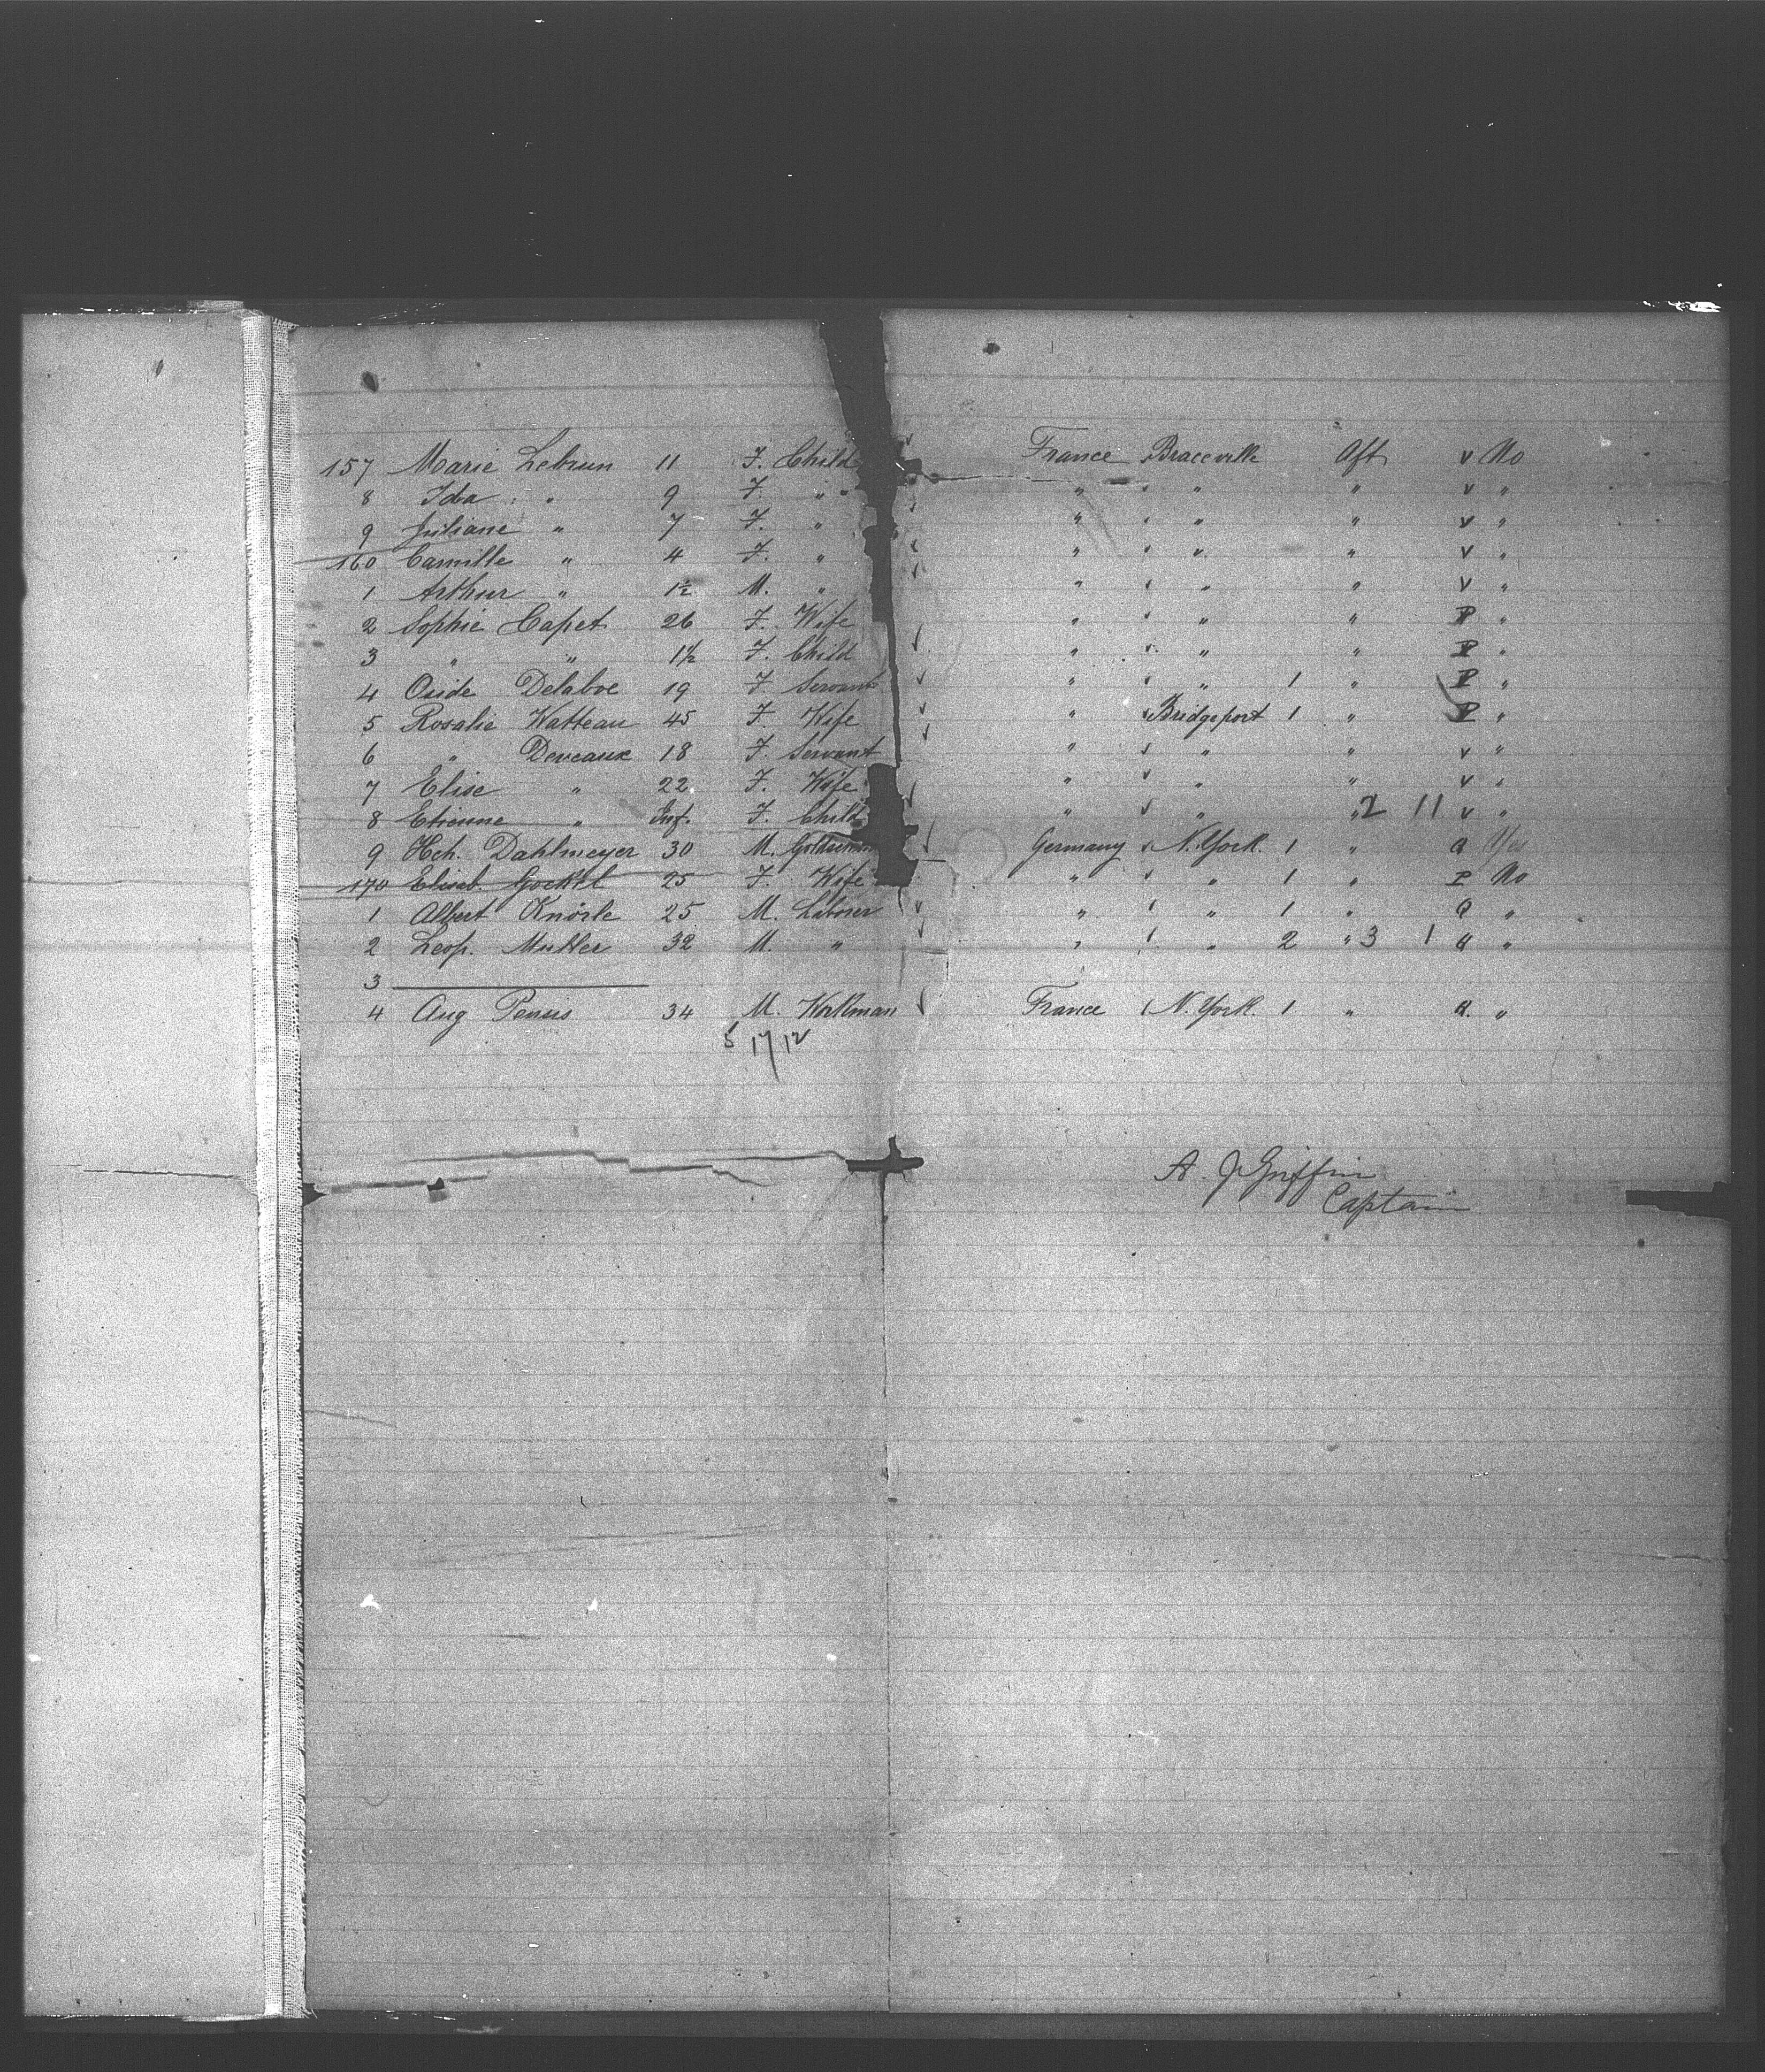 157 Marie Lebrun 11 F. Child France Braceville Aft v No
8 Ida " 9 F. " " " " v "
9 Juliane " 7 F. " " " " v "
160 Camille " 4 F. " " " " v "
1 Arthur " 1½ M. " " " " v "
2 Sophie Capet 26 F. Wife " " " P "
3 " " 1½ F. Child " " " P "
4 Delaboe 19 F Servant " " 1 " P "
5 Rosalie Watteau 45 F. Wife " Bridgeport 1 " P "
6 " Deveaux 18 F. Servant " " " v "
7 Elise " 22. F. Wife " " " v "
8 Etienne " Inf. F. Child " " " 2 11 v "
9 Hch. Dahlmeyer 30 M. Germany N. York. 1 " a Yes
170 Elisab. Gockel 25 F. Wife " " 1 " P No
1 Albert Knörle 25 M. Laborer " " 1 " a "
2 Leop. Muller 32 M. " " " 2 " 3 1 a "
3
4 Aug 34 M. Workman France N. York. 1 " a. "
5 17 12
A. J Griffin
Captain